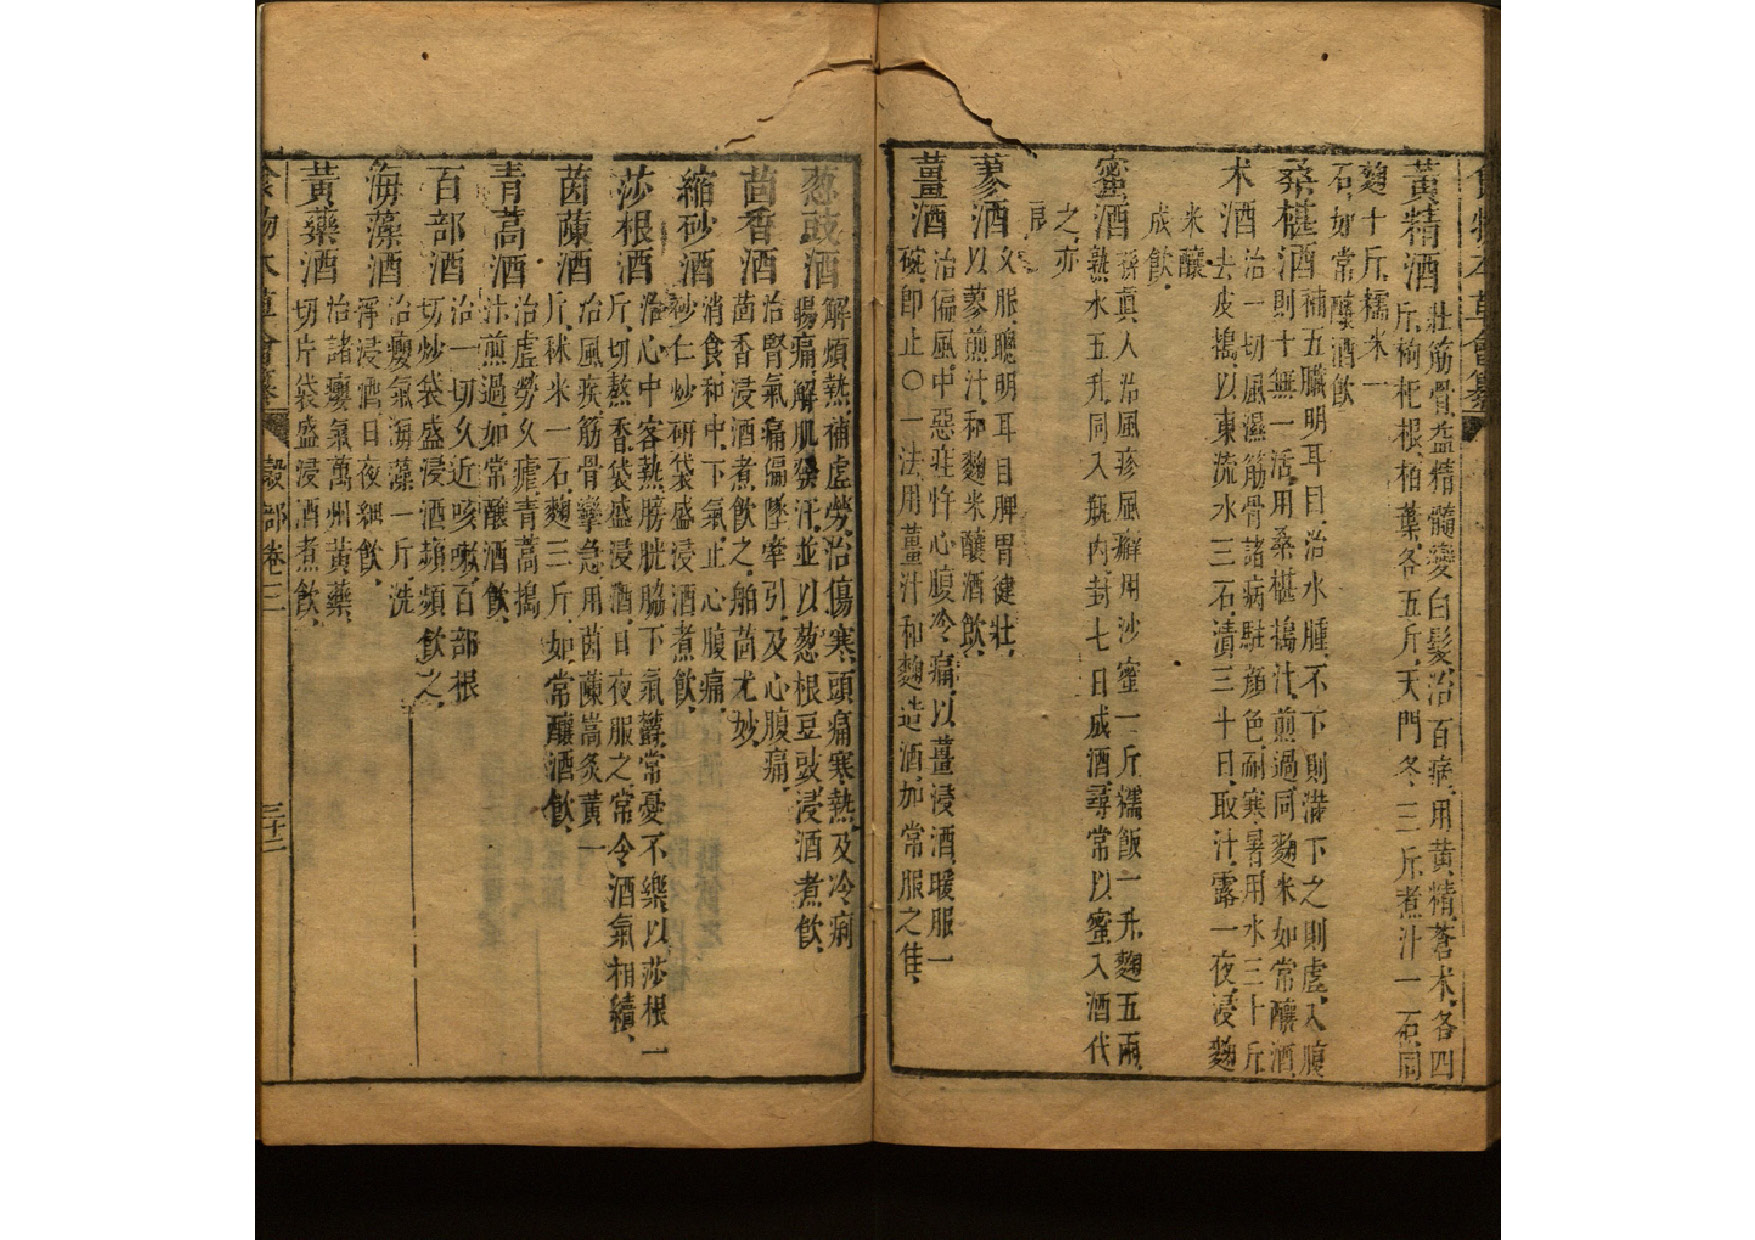 食物本草會纂
黃精酒
壯筋骨益精髓變白髮治百病用黃精蒼术各四
斤枸杞根柏葉各五斤天門冬三斤煮汁一石同
麯十斤糯米一
石如常釀酒飲
桑椹酒
補五臟明耳目治水腫不下則滿下之則虛入腹
則十無一活用桑椹搗汁煎過同麯米如常釀酒
术酒
治一切風濕筋骨諸病駐顏色耐寒暑用水三十斤
去皮搗以東流水三石漬三十日取汁露一夜浸麯
米釀
成飲
蜜酒
孫真人治風疹風癬用沙蜜一斤糯飯一升麯五兩
熱水五升同入瓶內封七日成酒尋常以蜜入酒代
之亦
蓼酒
久服聰明耳目脾胃健壯
以蓼煎汁和麯米釀酒飲
薑酒
治偏風中惡疰忤心腹冷痛以薑浸酒暖服一
碗即止〇一法用薑汁和麯造酒如常服之佳
葱豉酒
解煩熱補虛勞治傷寒頭痛寒熱及冷痢
腸痛解肌發汗並以葱根豆豉浸酒煮飲
茴香酒
治腎氣痛偏墜牽引及心腹痛
茴香浸酒煮飲之舶茴尤妙
縮砂酒
消食和中下氣止心腹痛
砂仁炒研袋盛浸酒煮飲
莎根酒
治心中客熱膀胱脇下氣鬱常憂不樂以莎根一
斤切熬香袋盛浸酒日夜服之常令酒氣相續
茵蔯酒
治風疾筋骨攣急用茵蔯蒿炙黃一
斤秫米一石麯三斤如常釀酒飲
青蒿酒
治虛勞久瘧青蒿搗
汁煎過如常釀酒飲
百部酒
治一切久近咳嗽百部根
切炒袋盛浸酒頻頻飲之
海藻酒
治癭氣海藻一斤洗
淨浸酒日夜細飲
黃藥酒
治諸癭氣萬州黃藥
切片袋盛浸酒煮飲
食物本草會纂
穀部卷三
三十二